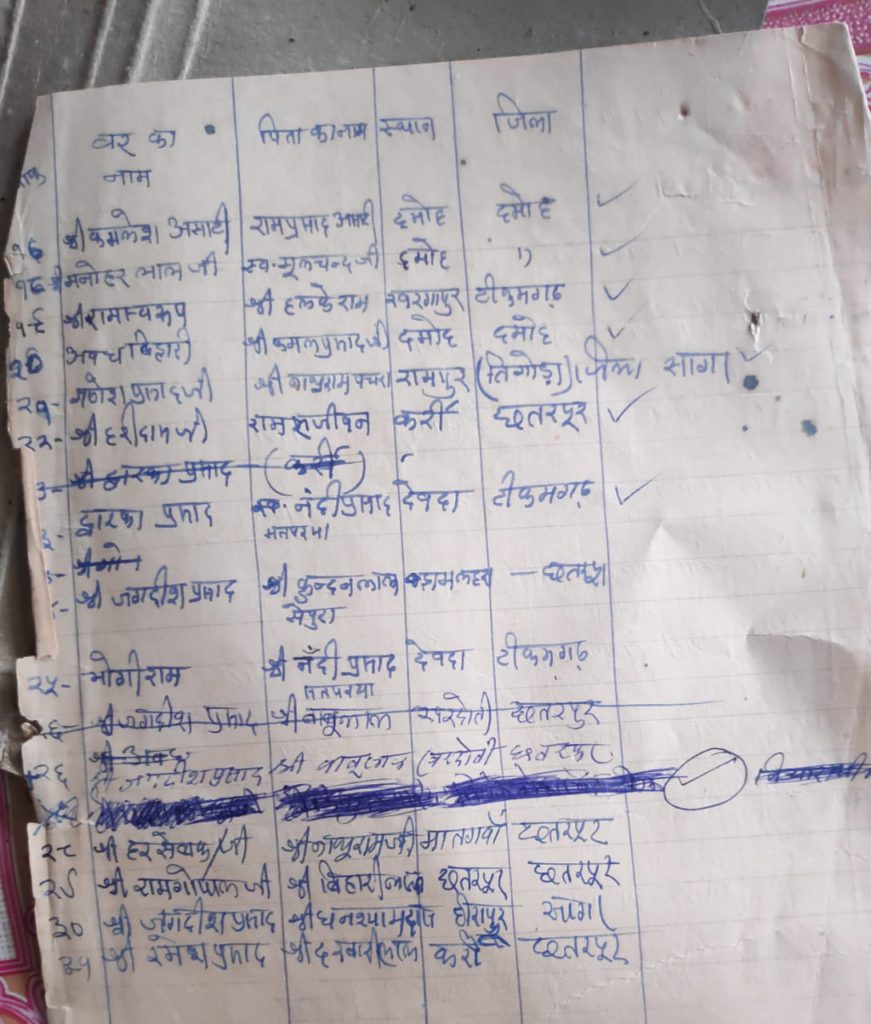 वर का पिता का नाम स्थान जिला
नाम
श्री कमलेश असाटी रामप्रसाद असाटी दमोह दमोह ✓
१८ श्री मनोहर लाल जी स्व. मूलचन्द जी दमोह ") ✓
१९ श्री रामस्वरूप श्री हलकेराम खरगापुर टीकमगढ़ ✓
२० अवधबिहारी श्री कमलप्रसाद जी दमोह दमोह ✓
२१- गणेश प्रसाद जी श्री नाथूराम रामपुर (तिगोड़ा) जिला सागर ✓
२२- श्री हरीदास जी राम सजीवन कर्री छतरपुर ✓
३- श्री द्वारका प्रसाद (कर्री)
३- द्वारका प्रसाद स्व. नंदी प्रसाद देवदा टीकमगढ़ ✓
श्री जगदीश प्रसाद श्री कुन्दनलाल बड़ामलहरा — छतरपुर
२५- मोगीराम श्री नँदी प्रसाद देवदा टीकमगढ़
२६- श्री जगदीश प्रसाद श्री बाबूलाल छतरपुर
२६ श्री जगदीश प्रसाद श्री बाबूलाल छतरपुर
२८ श्री हरसेवक जी श्री नाथूराम जी मातगवाँ छतरपुर
२९ श्री रामगोपाल जी श्री बिहारीलाल छतरपुर छतरपुर
३० श्री जगदीश प्रसाद श्री घनश्यामदास हीरापुर सागर
३१ श्री रमेश प्रसाद श्री दरबारीलाल कर्री छतरपुर